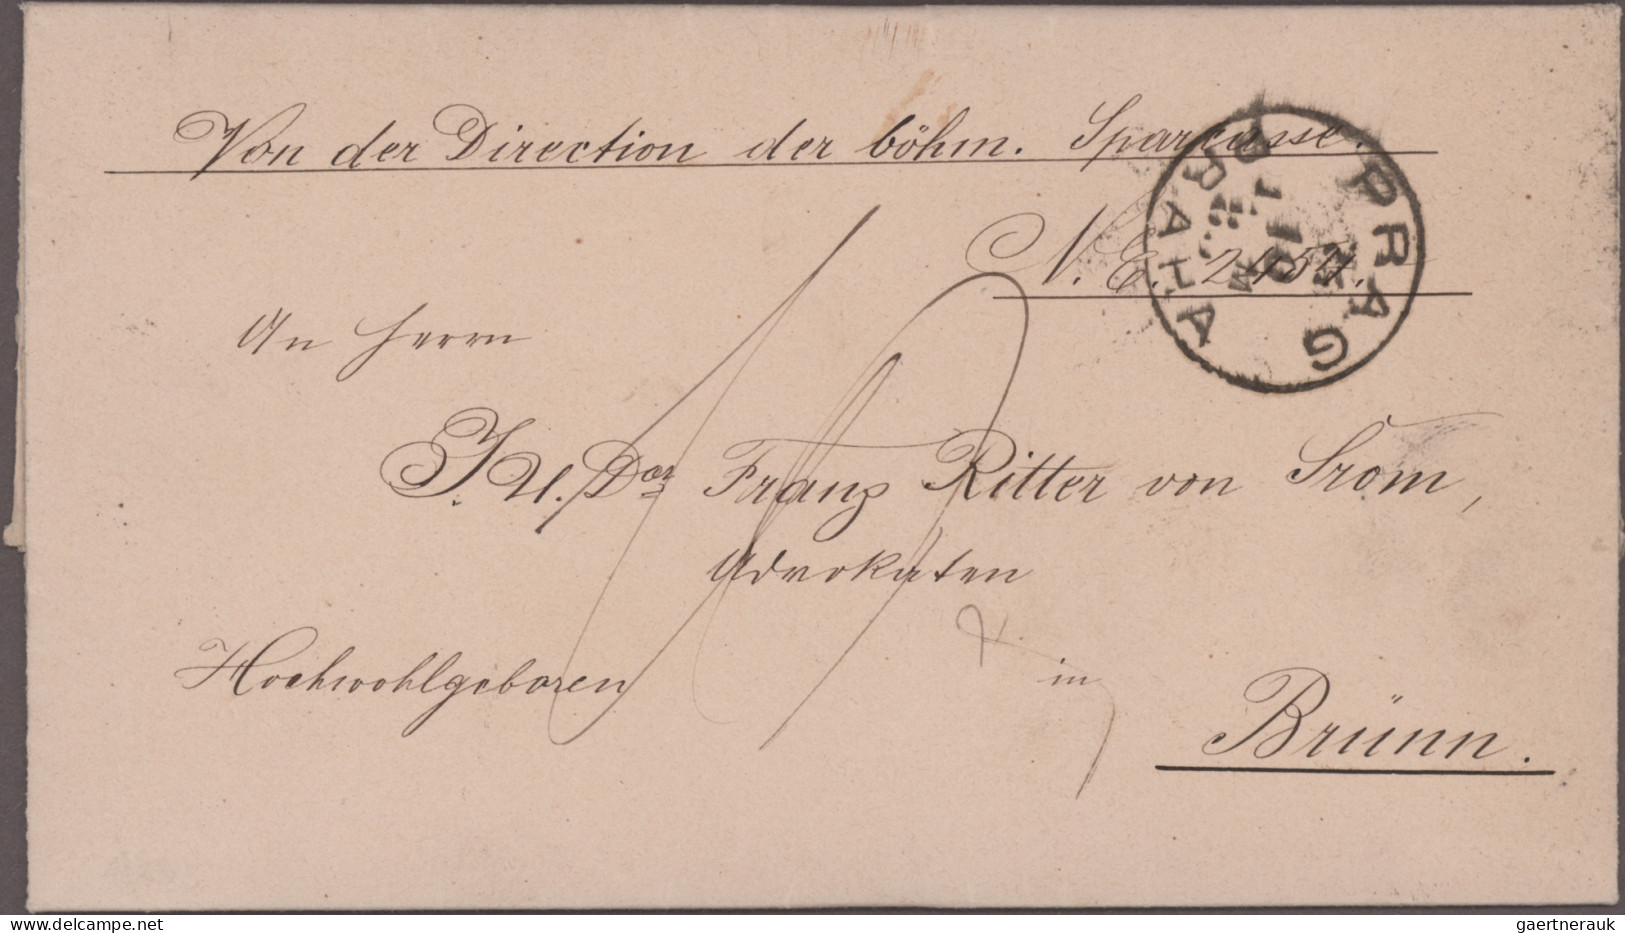 Von der Direction der böhm. Sparcasse.
PRAG
PRAHA
N. E. 2154.
An Herrn
J. U. Dor Franz Ritter von Šrom,
Advokaten
Hochwohlgeboren
in
Brünn.
gaertnerauk